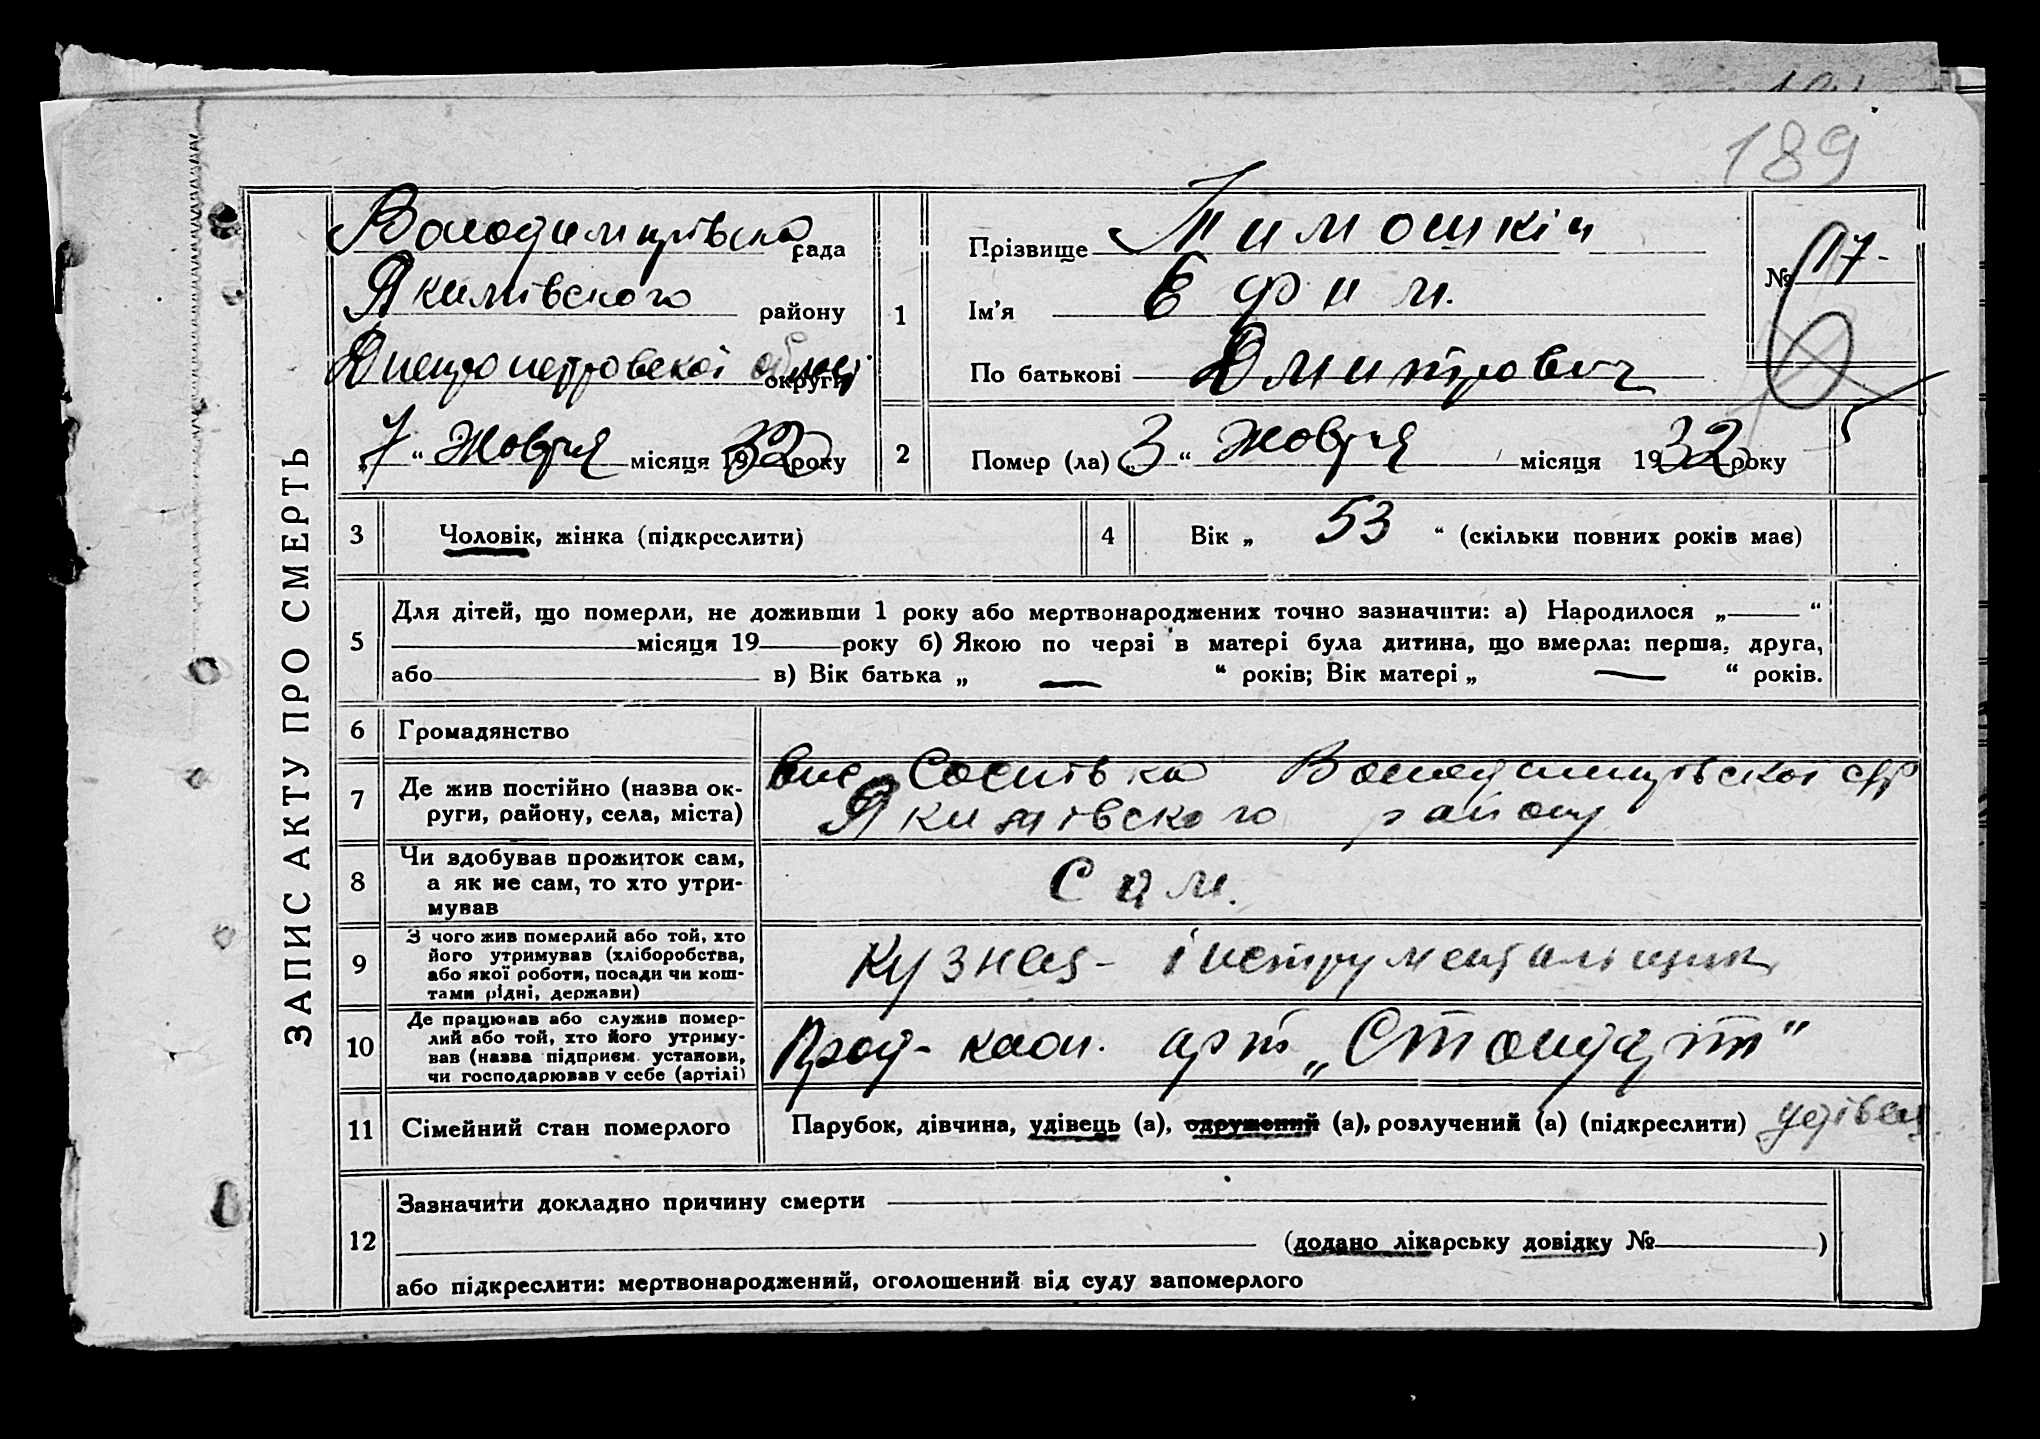 189
ЗАПИС АКТУ ПРО СМЕРТЬ
Володимирівська рада
Якимівського району
Днепропетровскої округи
„7“ Жовтня місяця 1932 року
1
Прізвище Тимошкін
Ім'я Ефим.
По батькові Дмитрович
№ 17-
2
Помер (ла) „3“ Жовтня місяця 1932 року
3
Чоловік, жінка (підкреслити)
4
Вік „ 53 “ (скільки повних років має)
5
Для дітей, що померли, не доживши 1 року або мертвонароджених точно зазначити: а) Народилося „ “
місяця 19 року б) Якою по черзі в матері була дитина, що вмерла: перша, друга,
або в) Вік батька „ — “ років; Вік матері „ — “ років.
6
Громадянство
7
Де жив постійно (назва ок-
руги, району, села, міста)
Соснівка Володимирівскої с/р
Якимівского району
8
Чи здобував прожиток сам,
а як не сам, то хто утри-
мував
Сам.
9
З чого жив померлий або той, хто
його утримував (хліборобства,
або якої роботи, посади чи кош-
тами рідні, держави)
Кузнец- інструментальщик
10
Де працював або служив помер-
лий або той, хто його утриму-
вав (назва підприєм. установи,
чи господарював у себе (артілі)
арт „Стандарт"
11
Сімейний стан померлого
Парубок, дівчина, удівець (а), одружений (а), розлучений (а) (підкреслити) удівец
12
Зазначити докладно причину смерти
(додано лікарську довідку № )
або підкреслити: мертвонароджений, оголошений від суду запомерлого